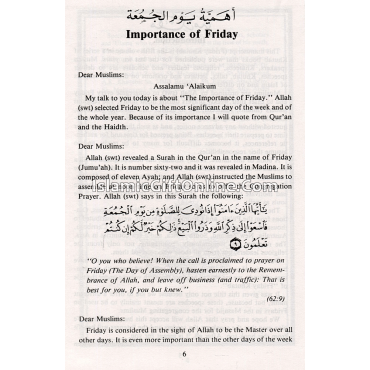 أهمية يوم الجمعة
Importance of Friday
Dear Muslims:
Assalamu 'Alaikum
My talk to you today is about "The Importance of Friday." Allah
(swt) selected Friday to be the most significant day of the week and of
the whole year. Because of its importance I will quote from Qur'an
and the Haidth.
Dear Muslims:
Allah (swt) revealed a Surah in the Qur'an in the name of Friday
(Jumu'ah). It is number sixty-two and it was revealed in Madina. It is
composed of eleven Ayah; and Allah (swt) instructed the Muslims to
Prayer. Allah (swt) says in this Surah the following:
يَا أَيُّهَا الَّذِينَ ءَامَنُوا إِذَا نُودِيَ لِلصَّلَوٰةِ مِن يَوْمِ الْجُمُعَةِ
فَاسْعَوْا إِلَىٰ ذِكْرِ اللَّهِ وَذَرُوا الْبَيْعَ ذَٰلِكُمْ خَيْرٌ لَّكُمْ إِن كُنتُمْ
تَعْلَمُونَ ﴿٩﴾
"O you who believe! When the call is proclaimed to prayer on
Friday (The Day of Assembly), hasten earnestly to the Remem-
brance of Allah, and leave off business (and traffic): That is
best for you, if you but knew."
(62:9)
Dear Muslims:
Friday is considered in the sight of Allah to be the Master over all
other days. It is even more important than the other days of the week
6